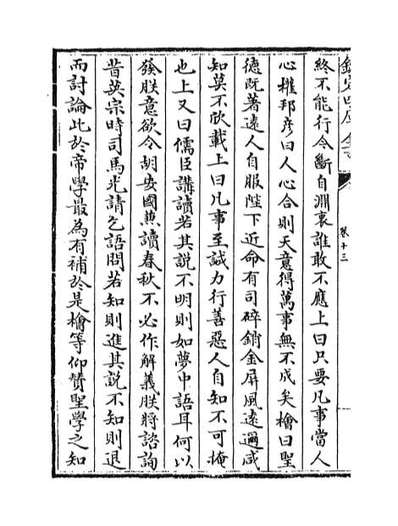 欽定四庫全書
卷十三
終不能行今斷自淵衷誰敢不應上曰只要凡事當人
心權邦彦曰人心合則天意得萬事無不成矣檜曰聖
德既著遠人自服陛下近命有司碎銷金屏風遠邇咸
知莫不欣戴上曰凡事至誠力行善惡人自知不可掩
也上又曰儒臣講讀若其説不明則如夢中語耳何以
發朕意欲令胡安國熊讀春秋不必作解義朕將諮詢
昔英宗時司馬光請乞語問若知則進其説不知則退
而討論此於帝學最為有補於是檜等仰贊聖學之知